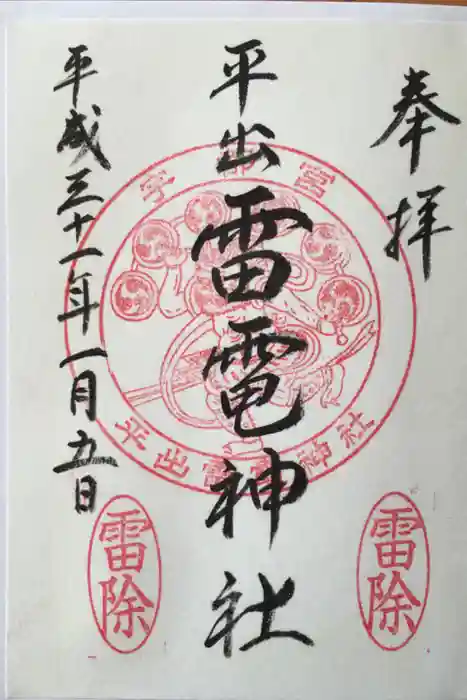 奉拝
平出雷電神社
平成三十一年一月五日
宇都宮
平出雷電神社
雷除
雷除